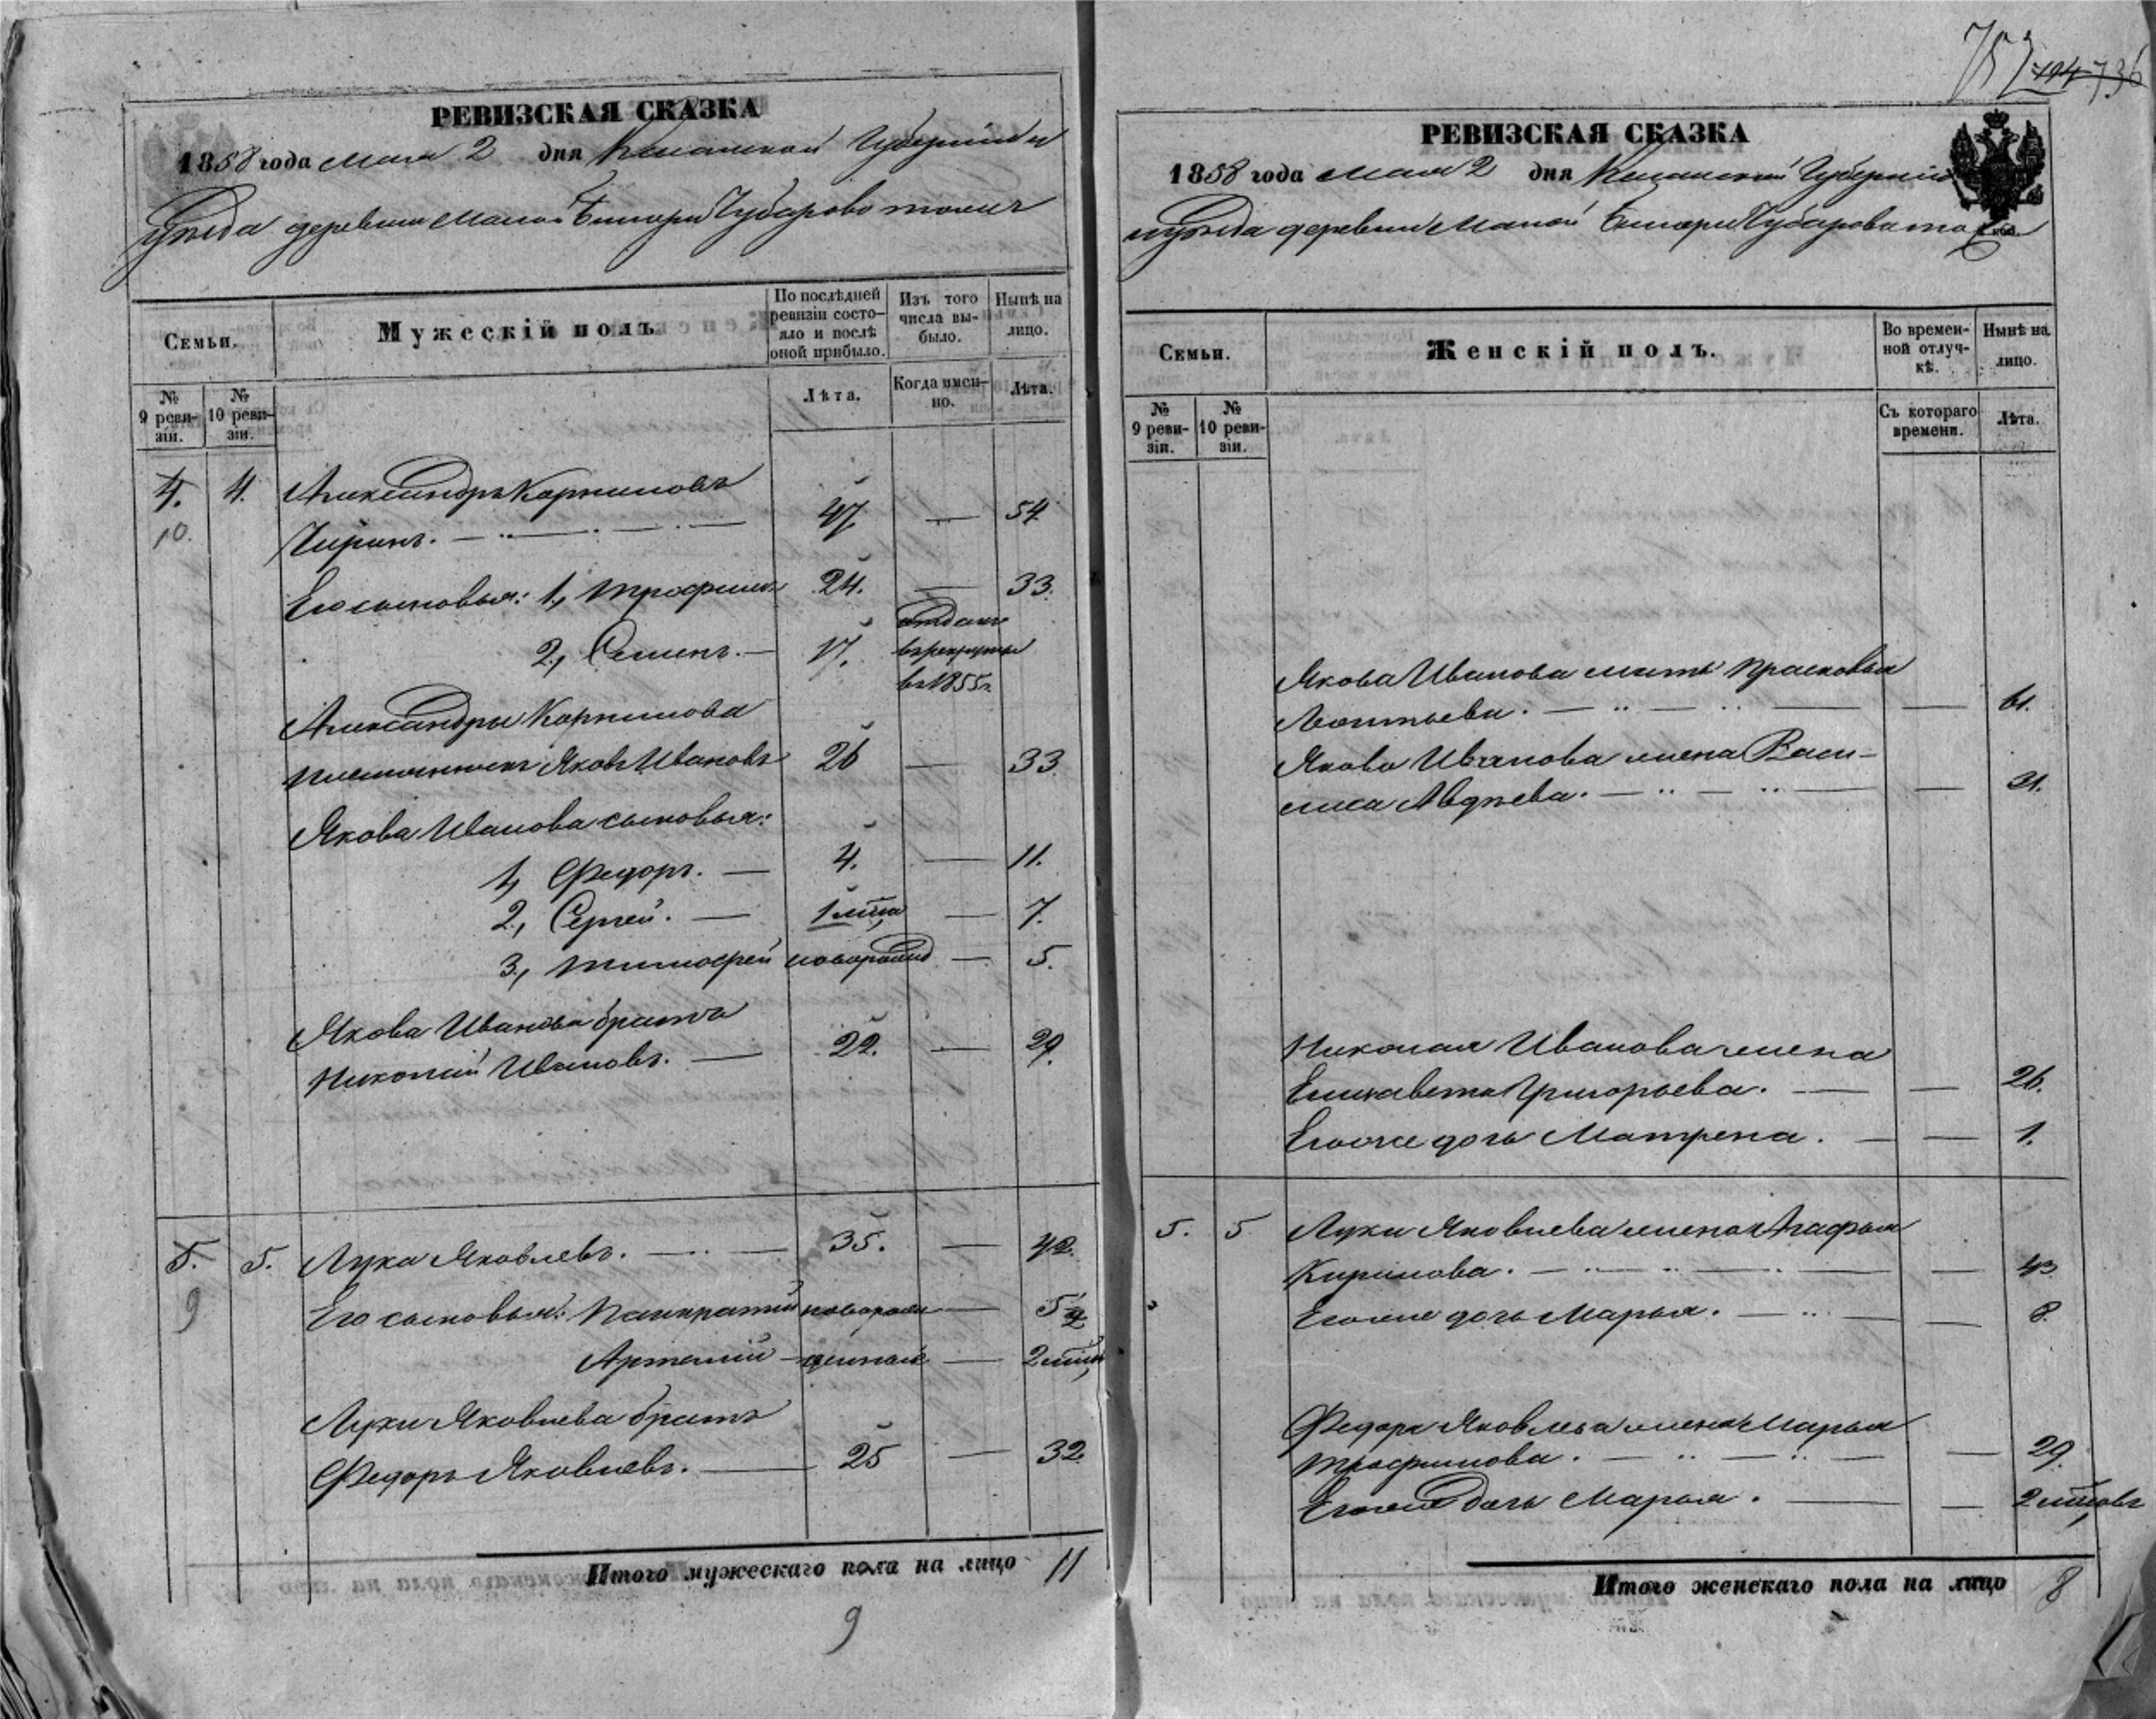 РЕВИЗСКАЯ СКАЗКА
1858 года Мая 2 дня Казанской Губернии
уѣзда деревни Малой Чубарово тожъ
Семьи.
Мужескій полъ
По послѣдней ревизіи состояло и послѣ оной прибыло.
Изъ того числа выбыло.
Нынѣ на лицо.
№ 9 ревизіи.
№ 10 ревизіи.
Лѣта.
Когда именно.
Лѣта.
4. 4. Александръ Корниловъ
10. 47. — 54
Его сыновья: 1, Трофимъ 24. — 33.
2, Семенъ. — 17. отданъ
въ рекруты
въ 1855 г.
Александра Корнилова
племянникъ Яковъ Ивановъ 26 — 33
Якова Иванова сыновья:
1, Федоръ. — 4. — 11.
2, Сергей. — 1 — 7.
3, Тимофей новорожд — 5.
Якова Иванова братъ
Николай Ивановъ. — 22. — 29.
5. 5. Лука Яковлевъ. — 35. — 42.
9 Его сыновья: Панкратій новорож — 5
Артемій — денные — 2
Луки Яковлева братъ
Федоръ Яковлевъ. — 25 — 32.
Итого мужескаго пола на лицо 11
9
736
РЕВИЗСКАЯ СКАЗКА
1858 года Мая 2 дня Казанской Губерніи
уѣзда деревни Малой Чубарова
Семьи.
Женскій полъ.
Во временной отлучкѣ.
Нынѣ на лицо.
№ 9 ревизіи.
№ 10 ревизіи.
Съ котораго времени.
Лѣта.
Якова Иванова мать Прасковья
Леонтьева. — 61.
Якова Иванова жена Васи-
лиса Авдѣева. — 31.
Николая Иванова жена
Елизавета Григорьева. — — 26.
Его же дочь Матрена. — — 1.
5. 5 Луки Яковлева жена Агафья
Кирилова. — 43
Его же дочь Марья. — 8.
Федора Яковлева жена Марья
Трофимова. — 29.
Его же дочь Марья. — — 2
Итого женскаго пола на лицо 8